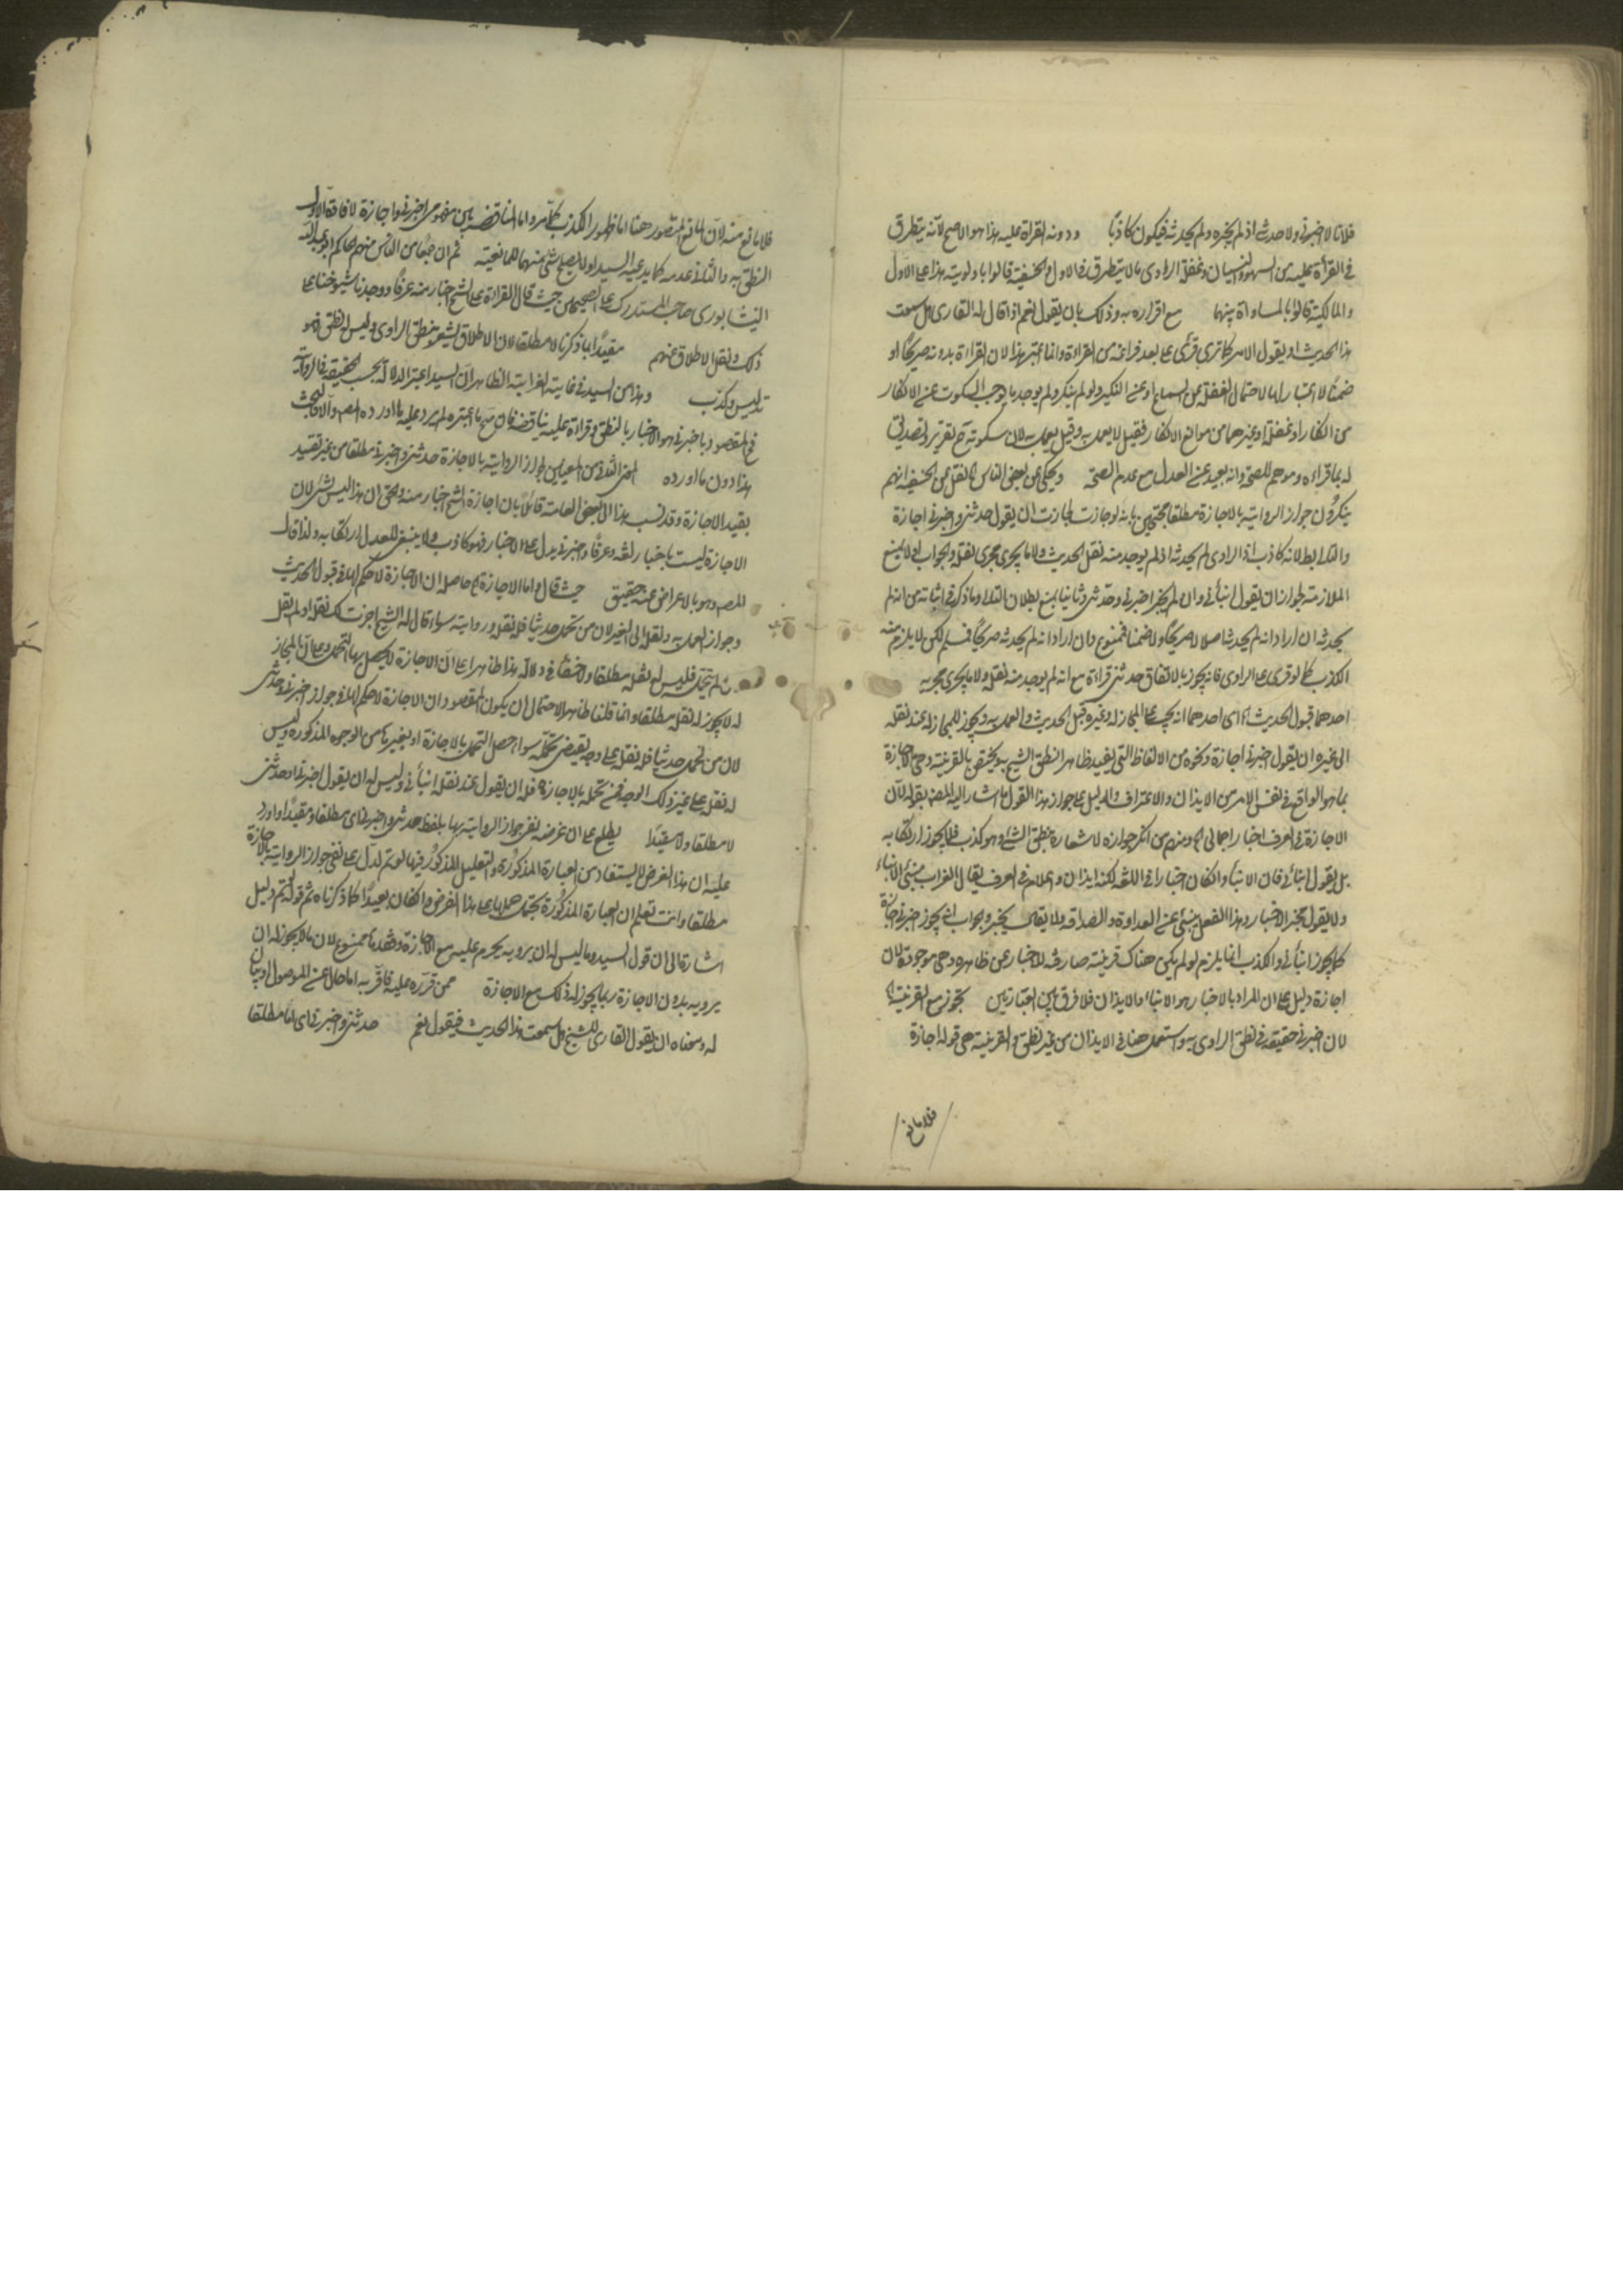 فلانا لا خبرنى ولا حدث اذ لم يخبره ولم يحدثه فيكون كاذبًا ودونه القراة عليه هذا هو الاصح لانه يتطرق
فى القرأة عليه من السهو والنسيان وغفلة الراوى ما لا يتطرق فى الاول والحنفية قالوا باولويته هذا على الاول
والمالكية قالوا بالمساواة بينهما مع اقراره به وذلك بان يقول نعم اذا قال له القارى هل سمعت
هذا الحديث او يقول الامر كما قرى على بعد فراغه من القراءة وانما اعتبر هذا لان القراءة بدونه صريحًا او
ضمنًا لا اعتبار لها لاحتمال الغفلة عن السماع او عن النكير ولو لم ينكر ولم يوجد ما يوجب السكوت عن الانكار
من اكفار او غفلة او غيرهما من موانع الانكار فقيل لا يعمل به وقيل يعمل به لان سكوته ح تقرير وتصديق
له بما قراءه وموهم للصحة وانه بعيد عن العدل مع عدم الصحة ويحكى عن بعض الناس نقل عن الحنفية انهم
ينكرون جواز الرواية بالاجازة مطلقا محتجين بانه لو جازت لجازت ان يقول حدثنى واخبرنى اجازة
والتالى بطلانه كاذب اذ الراوى لم يحدثه اذ لم يوجد منه نقل الحديث ولا ما يجرى مجرى نقله والجواب اولا بمنع
الملازمة لجواز ان يقول انبأنى وان لم يجز اخبرنى وحدثنى وثانيا بمنع بطلان التالى وما ذكر فى اثباته من انه لم
يحدثه ان اراد انه لم يحدثه اصلا لا صريحًا ولا ضمنا فممنوع وان اراد انه لم يحدثه صريحًا فمسلم لكن لا يلزم منه
الكذب كما لو قرى على الراوى فانه يجوز بالاتفاق حدثنى قراءة مع انه لم يوجد منه نقل ولا ما يجرى مجريه
احدهما قبول الحديث اى احدهما انه يجب على المجاز له وغيره قبل الحديث والعمل به ويجوز للمجاز له عند نقله
الى غيره ان يقول اخبرنى اجازة ونحوه من الالفاظ التى يفيد ظاهرا نطق الشيخ به ويختص بالقرينة وهى الاجازة
بما هو الواقع فى نفس الامر من الايذان والاعتراف والدليل على جواز هذا القول ما اشار اليه المص بقوله لان
الاجازة فى العرف اخبار اجمالى ومنهم من انكر جوازه لاشعاره بنطق الشيخ وهو كذب فلا يجوز ارتكابه
بل يقول انبأنى فان الانبأ وان كان اخبارا فى اللغه لكنه ايذان واعلام فى العرف يقال الغراب منبئ الانباء
ولا يقول مخبر الاخبار وهذا الفعل ينبئ عن العداوة والصداقه ولا يقال يخبر والجواب انه يجوز اخبرنى اجازة
كما يجوز انبأنى والكذب انما يلزم لو لم يكن هناك قرينة صارفة للاخبار عن ظاهره وهى موجودة لان
اجازة دليل على ان المراد بالاخبار هو الانباء والايذان فلا فرق بين العبارتين تجوز مع القرينة
لان اخبرنى حقيقة فى نطق الراوى به واستعمل هنا فى الايذان من غير نطق والقرينة هى قوله اجازة
فلا مانع
فلا مانع منه لان المانع المتصور هنا اما ظهور الكذب كما مر واما المناقضة بين مفهومى اخبرنى واجازة لافادة الاول
النطق به والثانى عدمه كما يدعيه السيد اولا يصلح شئ منهما للمانعية ثم ان جمعا من الناس منهم الحاكم ابو عبد الله
النيشابورى صاحب المستدرك على الصحيحين حيث قال القراءة على الشيخ اخبار منه عرفًا ووجدنا شيوخنا على
ذلك ونقل الاطلاق عنهم مقيدًا بما ذكرنا لا مطلقا لان الاطلاق يشعر بنطق الراوى وليس له نطق فهو
تدليس وكذب وهذا من السيد فى غاية الغرابة الظاهر ان السيد اعتبر الدلالة بحسب الحقيقة
فى المقصود باخبرنى هو الاخبار بالنطق وقراءة عليه يناقضه فان صح ما اعتبره لم يرد عليه ما اورده المص والا فالبحث
هذا دون ما اورده اعنى الثانى من المعيدين لجواز الرواية بالاجازة حدثنى واخبرنى مطلقا من غير تقييد
بقيد الاجازة وقد نسب هذا الى بعض العامة قائلاً بان اجازة الشيخ اخبار منه والحق ان هذا ليس بشئ لان
الاجازة ليست باخبار لغة وعرفًا واخبرنى يدل على الاخبار فهو كاذب ولا ينبغى للعدل ارتكابه ولذا قال
المص وهو بالاعراض عنه حقيق حيث قال واما الاجازة حاصله ان الاجازة لا حكم لها فى قبول الحديث
وجواز العمل به ونقله الى الغير لان من تحمل حديثا فله نقله وروايته سواء قال له الشيخ اجزت لك نقله او لم يقل
ومن لم يتحمل فليس له نقله مطلقا ولا خفأ فى دلالة هذا ظاهرا على ان الاجازة لا يحصل بها التحمل وعلى ان المجاز
له لا يجوز له نقله مطلقا وانما قلنا ظاهرا لاحتمال ان يكون المقصود ان الاجازة لا حكم لها فى جواز اخبرنى وحدثنى
لان من تحمل حديثا فله نقله على وجه يقتضى تحمله سواء حصل التحمل بالاجازة او بغيرها من الوجوه المذكورة وليس
له نقله على غير ذلك الوجه فمن تحمله بالاجازة فله ان يقول عند نقله انبأنى وليس له ان يقول اخبرنى او حدثنى
لا مطلقا ولا مقيدًا يطلع على ان غرضه نفى جواز الرواية بها بلفظ حدثنى واخبرنى اى مطلقا ومقيدًا واورد
عليه ان هذا الغرض لا يستفاد من العبارة المذكورة والتعليل المذكور فيها لو تم لدل على نفى جواز الرواية بالاجازة
مطلقا وانت تعلم ان العبارة المذكورة يحتمل حملها على هذا الغرض وان كان بعيدًا كما ذكرناه ثم قوله لو تم دليل
اشارة الى ان قول السيد وما ليس له ان يرويه يحرم عليه مع الاجازة وفقدها ممنوع لان ما لا يجوز له ان
يرويه بدون الاجازة ربما يجوز له ذلك مع الاجازة ممن قرره عليه فاقر به اما حال عن الموصول او بيان
له ومعناه ان يقول القارى للشيخ هل سمعت هذا الحديث فيقول نعم حدثنى واخبرنى اى لنا مطلقا